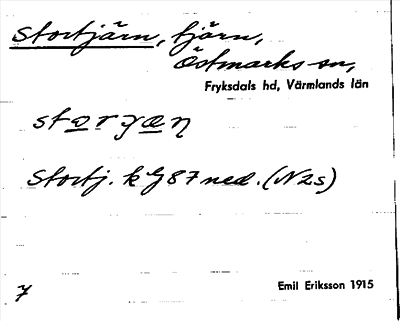 Stortjärn, tjärn,
Östmarks sn,
Fryksdals hd, Värmlands län
storyæn
Stortj. k 87 ned. (N2s)
7
Emil Eriksson 1915